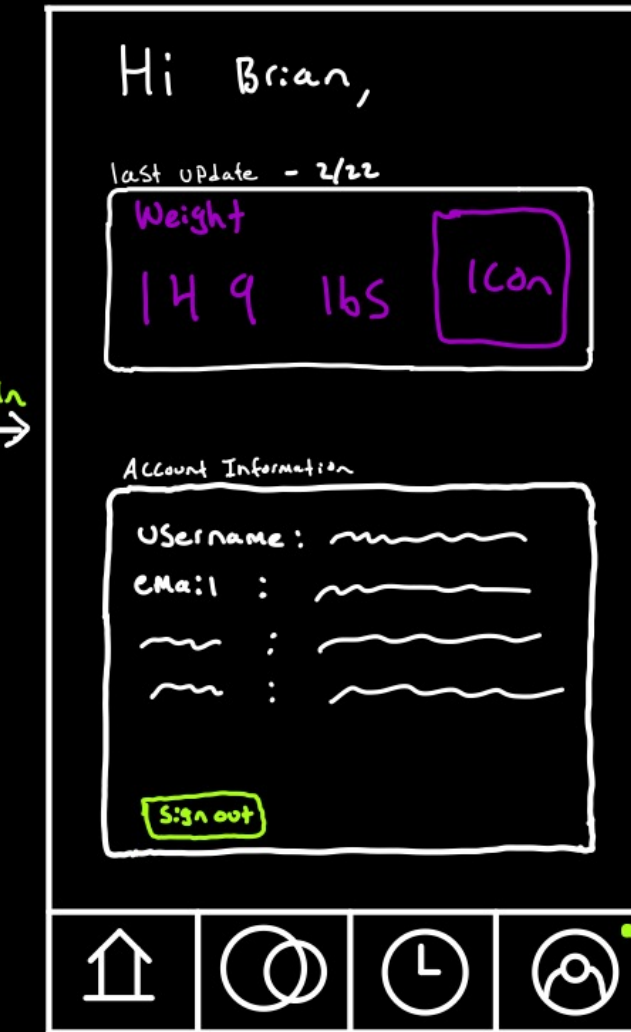 Hi Brian,
last update - 2/22
Weight
149 lbs
Icon
Account Information
Username:
email :
:
:
Sign out